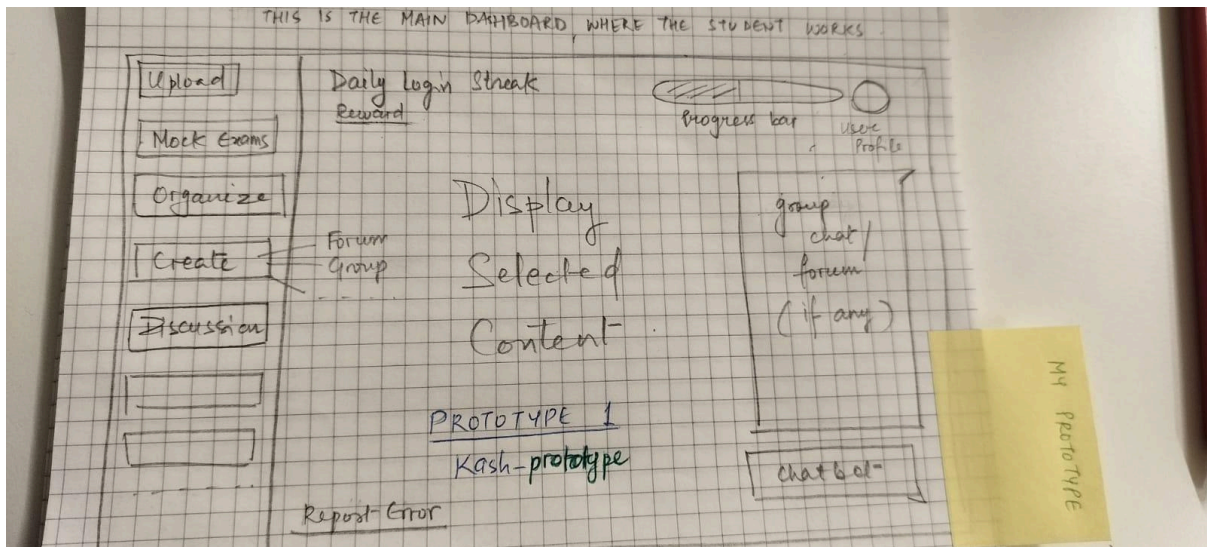 THIS IS THE MAIN DASHBOARD, WHERE THE STUDENT WORKS.
Upload
Mock Exams
Organize
Create
Forum
Group
Discussion
Daily Login Streak
Reward
Progress bar
User
Profile
Display
Selected
Content
group
chat/
forum
(if any)
PROTOTYPE 1
Kash-prototype
Chatbot
Report Error
MY PROTOTYPE